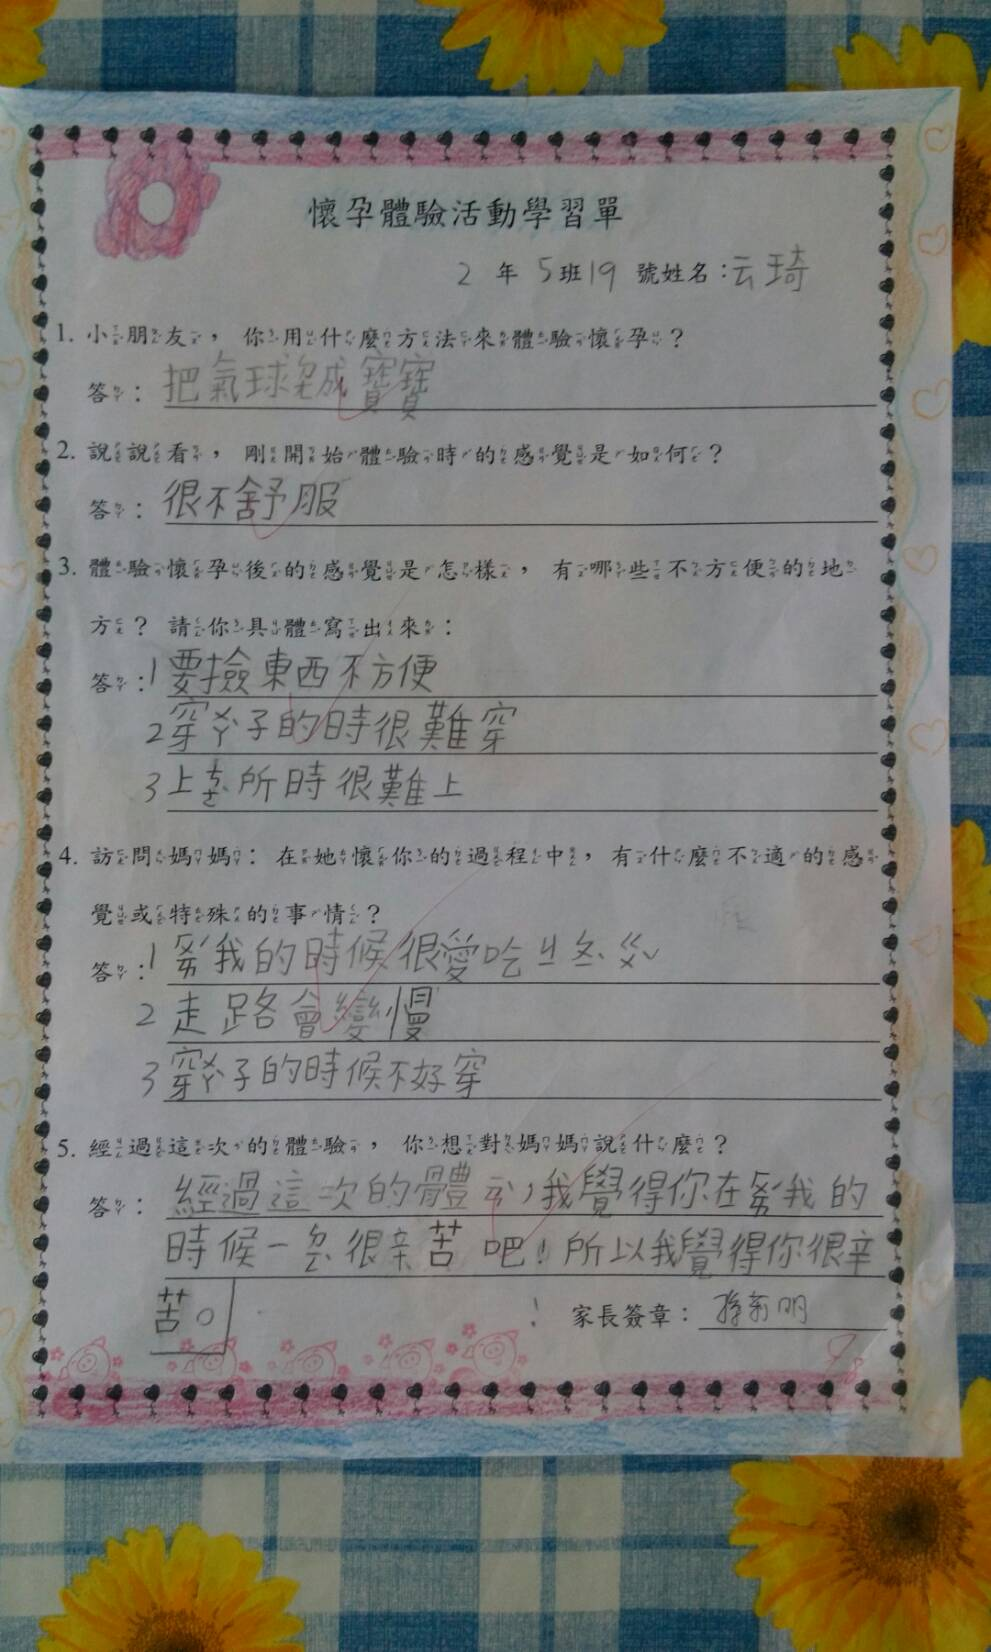 懷孕體驗活動學習單
2 年 5 班 19 號姓名：云琦
1. 小朋友，你用什麼方法來體驗懷孕？
答：把氣球變成寶寶
2. 說說看，剛開始體驗時的感覺是如何？
答：很不舒服
3. 體驗懷孕後的感覺是怎樣，有哪些不方便的地
方？請你具體寫出來：
答：1 要撿東西不方便
2 穿ㄒㄧㄝˊ子的時很難穿
3 上ㄘㄜˋ所時很難上
4. 訪問媽媽：在她懷你的過程中，有什麼不適的感
覺或特殊的事情？
答：1 我的時候很愛吃ㄐㄧㄠ
2 走路會變慢
3 穿子的時候不好穿
5. 經過這次的體驗，你想對媽媽說什麼？
答：經過這次的體，我覺得你在我的
時候一很辛苦吧！所以我覺得你很辛
苦。
家長簽章：明